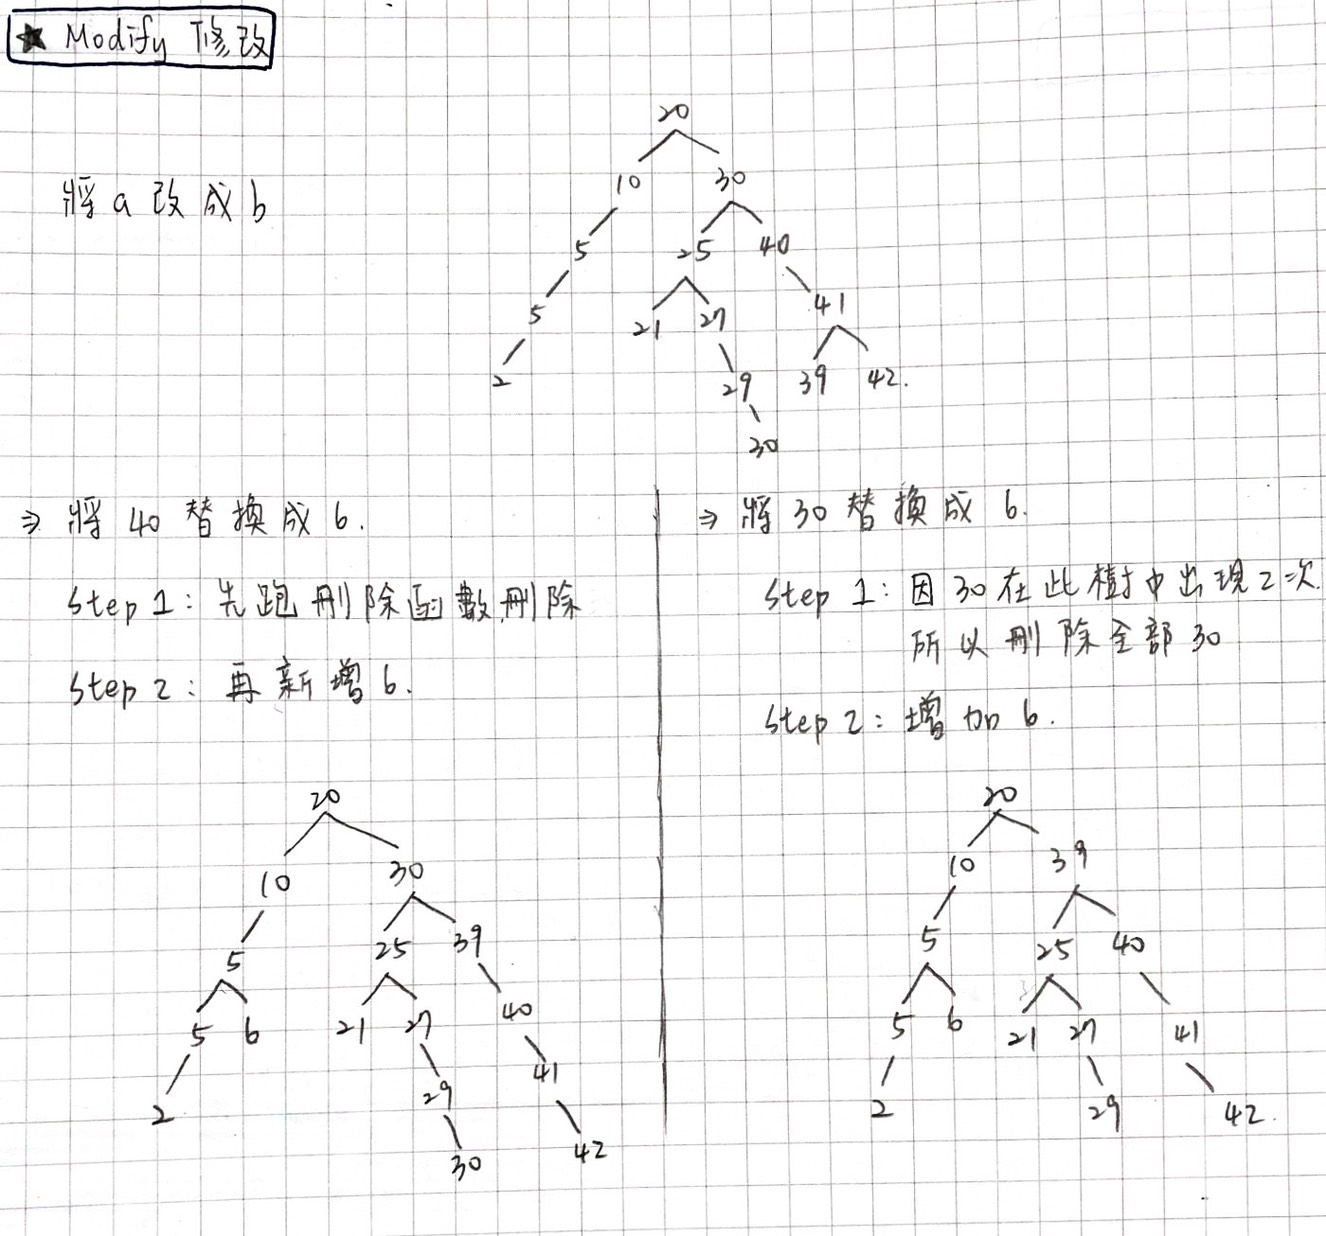 ★ Modify 修改
20
將 a 改成 b
10 30
5 25 40
5 21 27 41
2 29 39 42.
30
⇒ 將 40 替換成 6.
Step 1: 先跑刪除函數刪除
Step 2: 再新增 6.
20
10 30
5 25 39
5 6 21 27 40
2 29 41
30 42
⇒ 將 30 替換成 6.
Step 1: 因 30 在此樹中出現 2 次
所以刪除全部 30
Step 2: 增加 6.
20
10 39
5 25 40
5 6 21 27 41
2 29 42.